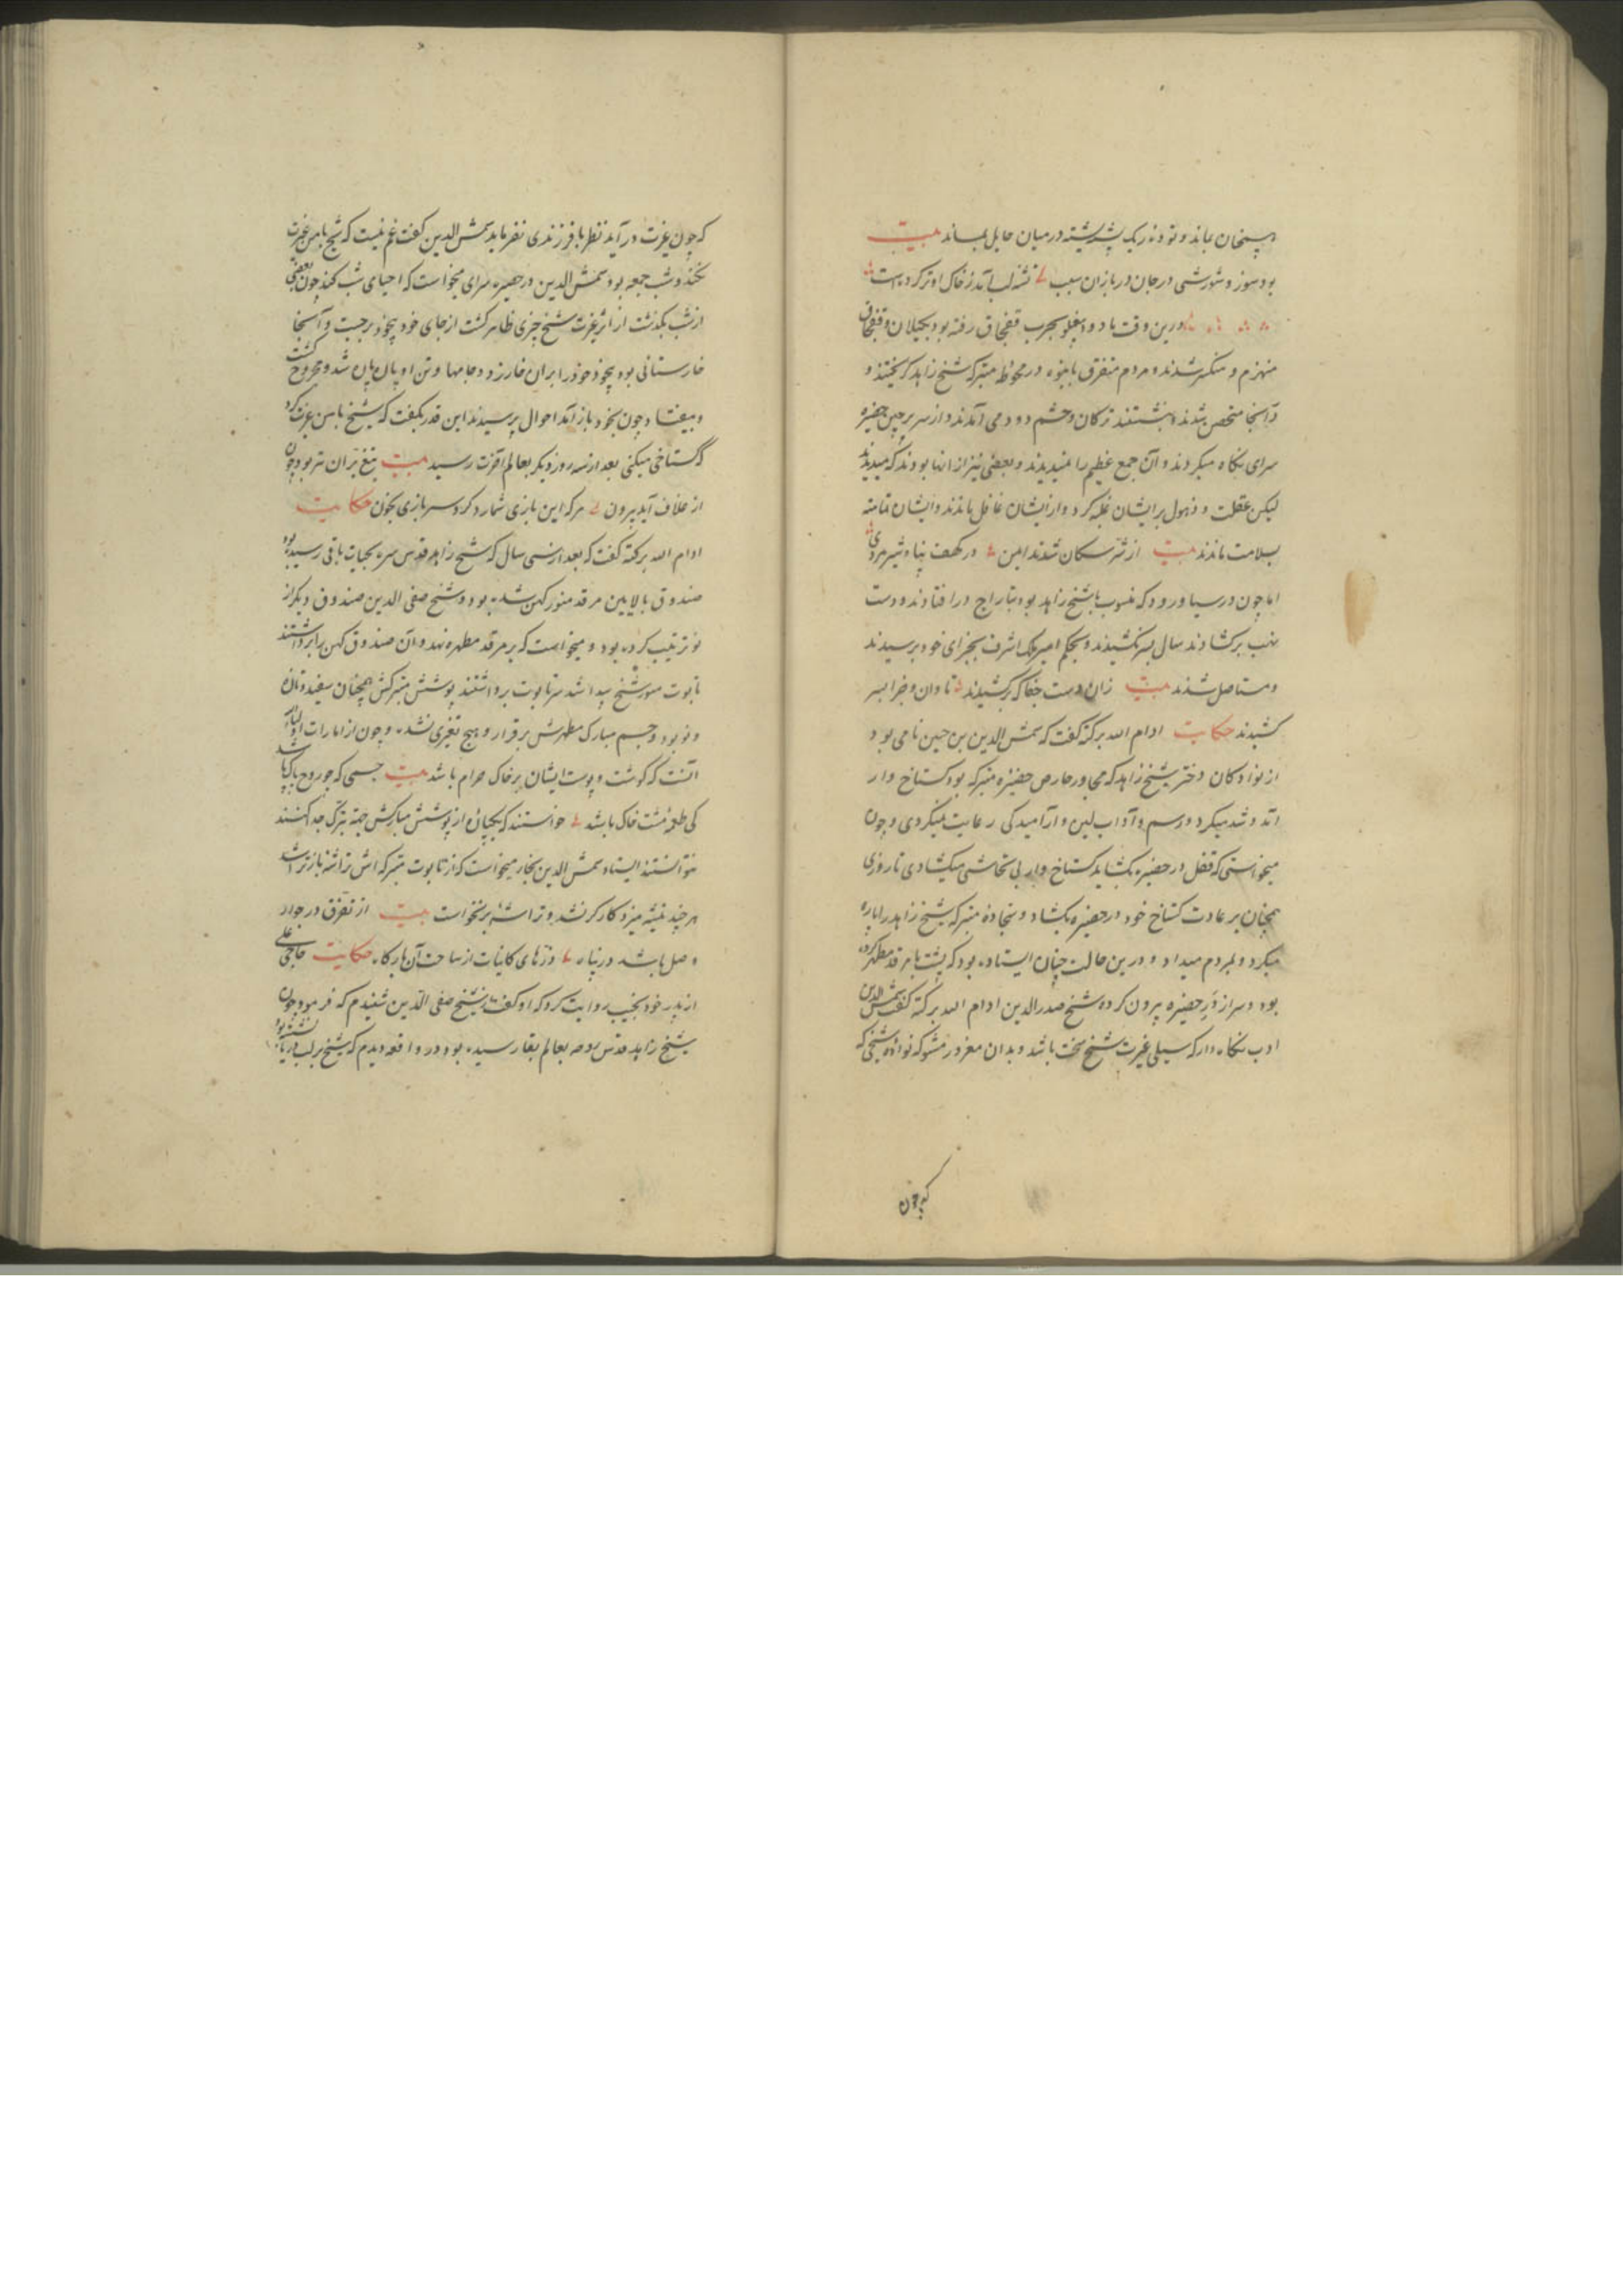 همچنان بماند و توده ریک پشته پشته در میان حایل بماند بیت
بود سوز و شورشی در جان دربازان سبب تشنه لب آمد ز خاک او تر کرده است
درین وقت باد و بغلو بحرب قفجاق رفته بود بجیلان و قفجاق
منهزم و منکسر شدند و مردم متفرق بانبوه در محوطه متبرکه شیخ زاهد کریختند و
در آنجا متحصن شدند و بنشستند ترکان و حشم دو دو می‌آمدند و از سر پرچین حضیره
سرای نکاه میکردند و آن جمع عظیم را نمیدیدند و بعضی نیز از انها بودند که میدیدند
لیکن غفلت و ذهول بر ایشان غلبه کرد و از ایشان غافل ماندند و ایشان تمامت
بسلامت ماندند بیت از شر سکان شدند ایمن در کهف پناه شیرمردی
اما چون در سیاورود که منسوب با شیخ زاهد بود بتاراج درافتادند و دست
نهب برکشادند سال بسر نکشیدند و بحکم امیر ملک اشرف بجزای خود برسیدند
و مستاصل شدند بیت زان دست جفا که برکشیدند تاوان و جزا بسر
کشیدند حکایت ادام الله برکته کفت که شمس الدین بن حسین نامی بود
از نوادکان دختر شیخ زاهد که مجاور و حارس حضیره متبرکه بود کستاخ وار
آمد و شد میکرد و رسم و آداب لین و آرامیدکی رعایت نمیکردی و چون
میخواستی که قفل در حضیره بکشاید کستاخ وار بی تحاشی میکشادی تا روزی
همچنان بر عادت کستاخ خود در حضیره بکشاد و سجاده متبرکه شیخ زاهد را پاره
میکرد و بمردم میداد و درین حالت چنان ایستاده بود که پشت با مرقد مطهر کرده
بود و سر از در حضیره بیرون کرده شیخ صدرالدین ادام الله برکته کفت شمس الدین
ادب نکاه دار که سیلی غیرت شیخ سخت باشد و بدان مغرور مشو که نواده شیخی که
که چون
که چون غیرت در آید نظر با فرزندی نفرماید شمس الدین کفت غم نیست که شیخ با من غیرت
نکند و شب جمعه بود شمس الدین در حضیره سرای میخواست که احیای شب کند چون بعضی
از شب بکذشت از اثر غیرت شیخ چیزی ظاهر کشت از جای خود بیخود برجست و آنجا
خارستانی بود بیخود خود را بر آن خار زد و جامها و تن او پاره پاره شد و مجروح کشت
و بیفتاد و چون بخود باز آمد احوال پرسیدند این قدر بکفت که شیخ با من غیرت کرد
که کستاخی میکنی بعد از سه روز دیکر بعالم آخرت رسید بیت تیغ بران تر بود چون
از غلاف آید برون هر که این بازی شمارد کرد سر بازی بخون حکایت
ادام الله برکته کفت که بعد از سی سال که شیخ زاهد قدس سره بحیات باقی رسیده بود
صندوق بالایین مرقد منور کهن شده بود و شیخ صفی الدین صندوق دیکر از
نو ترتیب کرده بود و میخواست که بر مرقد مطهره نهد و آن صندوق کهن را برداشتند
تابوت سور شیخ پیدا شد سر تابوت برداشتند پوشش متبرکش همچنان سفید و تازه
و نو بود و جسم مبارک مطهرش برقرار و هیچ تغیری نشده و چون از امارات اولیا
آنست که کوشت و پوست ایشان بر خاک حرام باشد بیت جسمی که چو روح پاک باشد
کی طعمه مشت خاک باشد خواستند که یکپاره از پوشش مبارکش جهة تبرک جدا کنند
نتوانستند استاد شمس الدین نجار میخواست که از تابوت متبرکه اش تراشه باز تراشد
هر چند تیشه میزد کارکر نشد و تراشه برنخواست بیت از تفرق در جوار
وصل باشد در پناه ذرهای کاینات از ساحت آن بارکاه حکایت حاجی علی
از پدر خود نجیب روایت کرد که او کفت از شیخ صفی الدین شنیدم که فرمود چون
شیخ زاهد قدس روحه بعالم بقا رسیده بود در واقعه دیدم که شیخ بر لب دریا نشسته بود